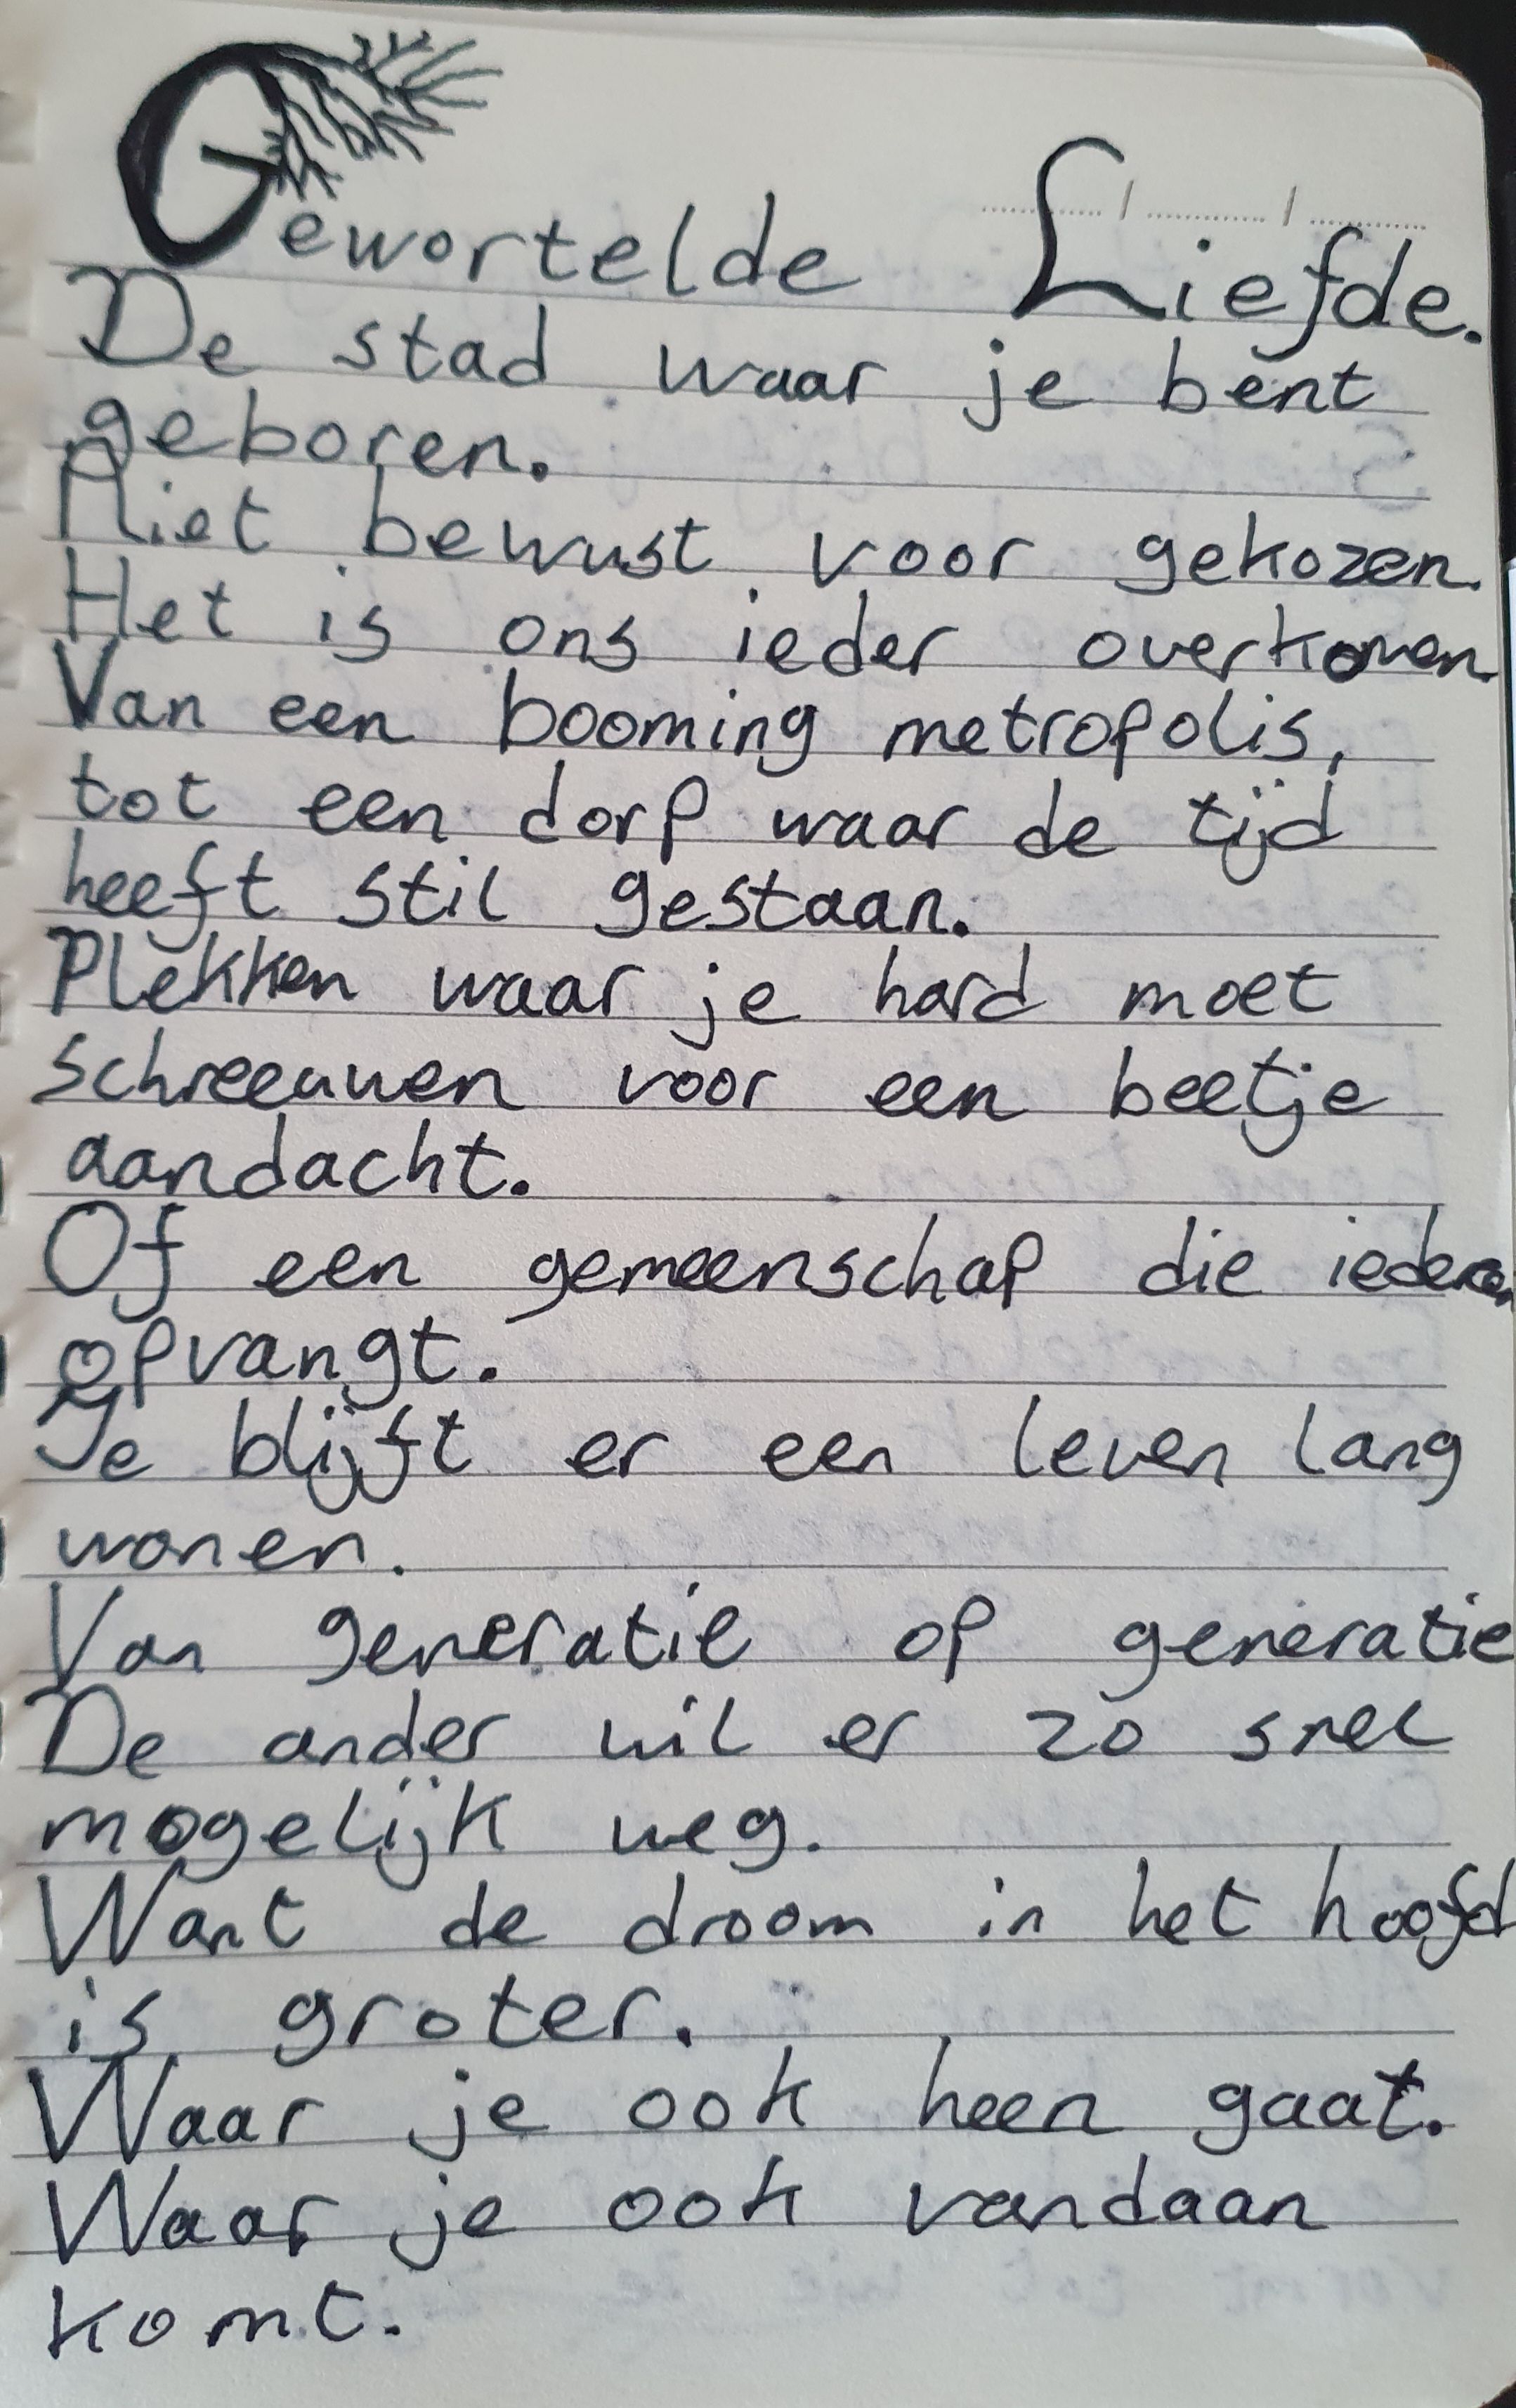 Gewortelde Liefde.
De stad waar je bent
geboren.
Niet bewust voor gekozen.
Het is ons ieder overkomen.
Van een booming metropolis,
tot een dorp waar de tijd
heeft stil gestaan.
Plekken waar je hard moet
schreeuwen voor een beetje
aandacht.
Of een gemeenschap die iedereen
opvangt.
Je blijft er een leven lang
wonen.
Van generatie op generatie
De ander wil er zo snel
mogelijk weg.
Want de droom in het hoofd
is groter.
Waar je ook heen gaat.
Waar je ook vandaan
komt.